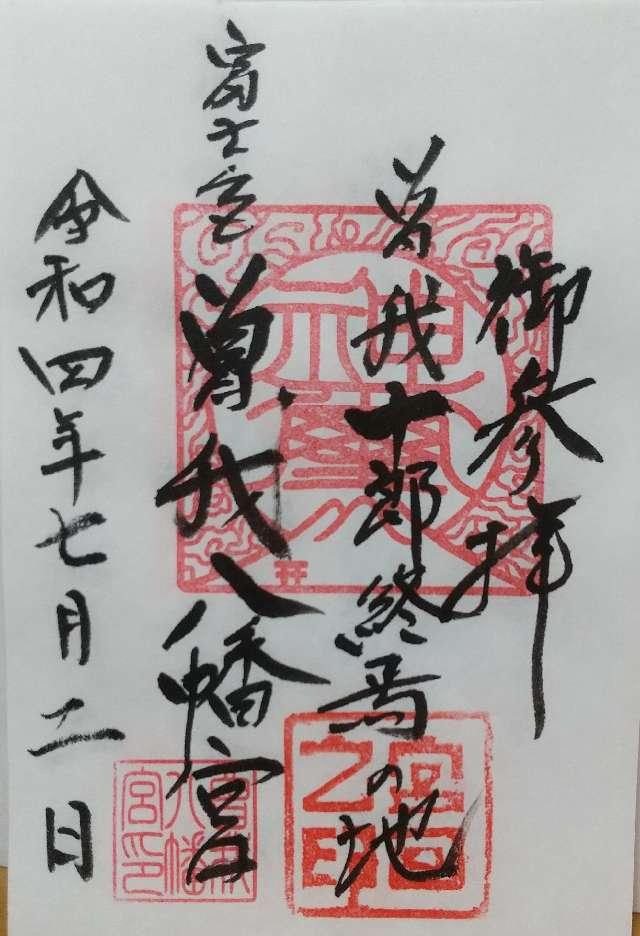 御参拝
曽我十郎終焉の地
富士宮
曽我八幡宮
令和四年七月二日
曽我八幡宮印